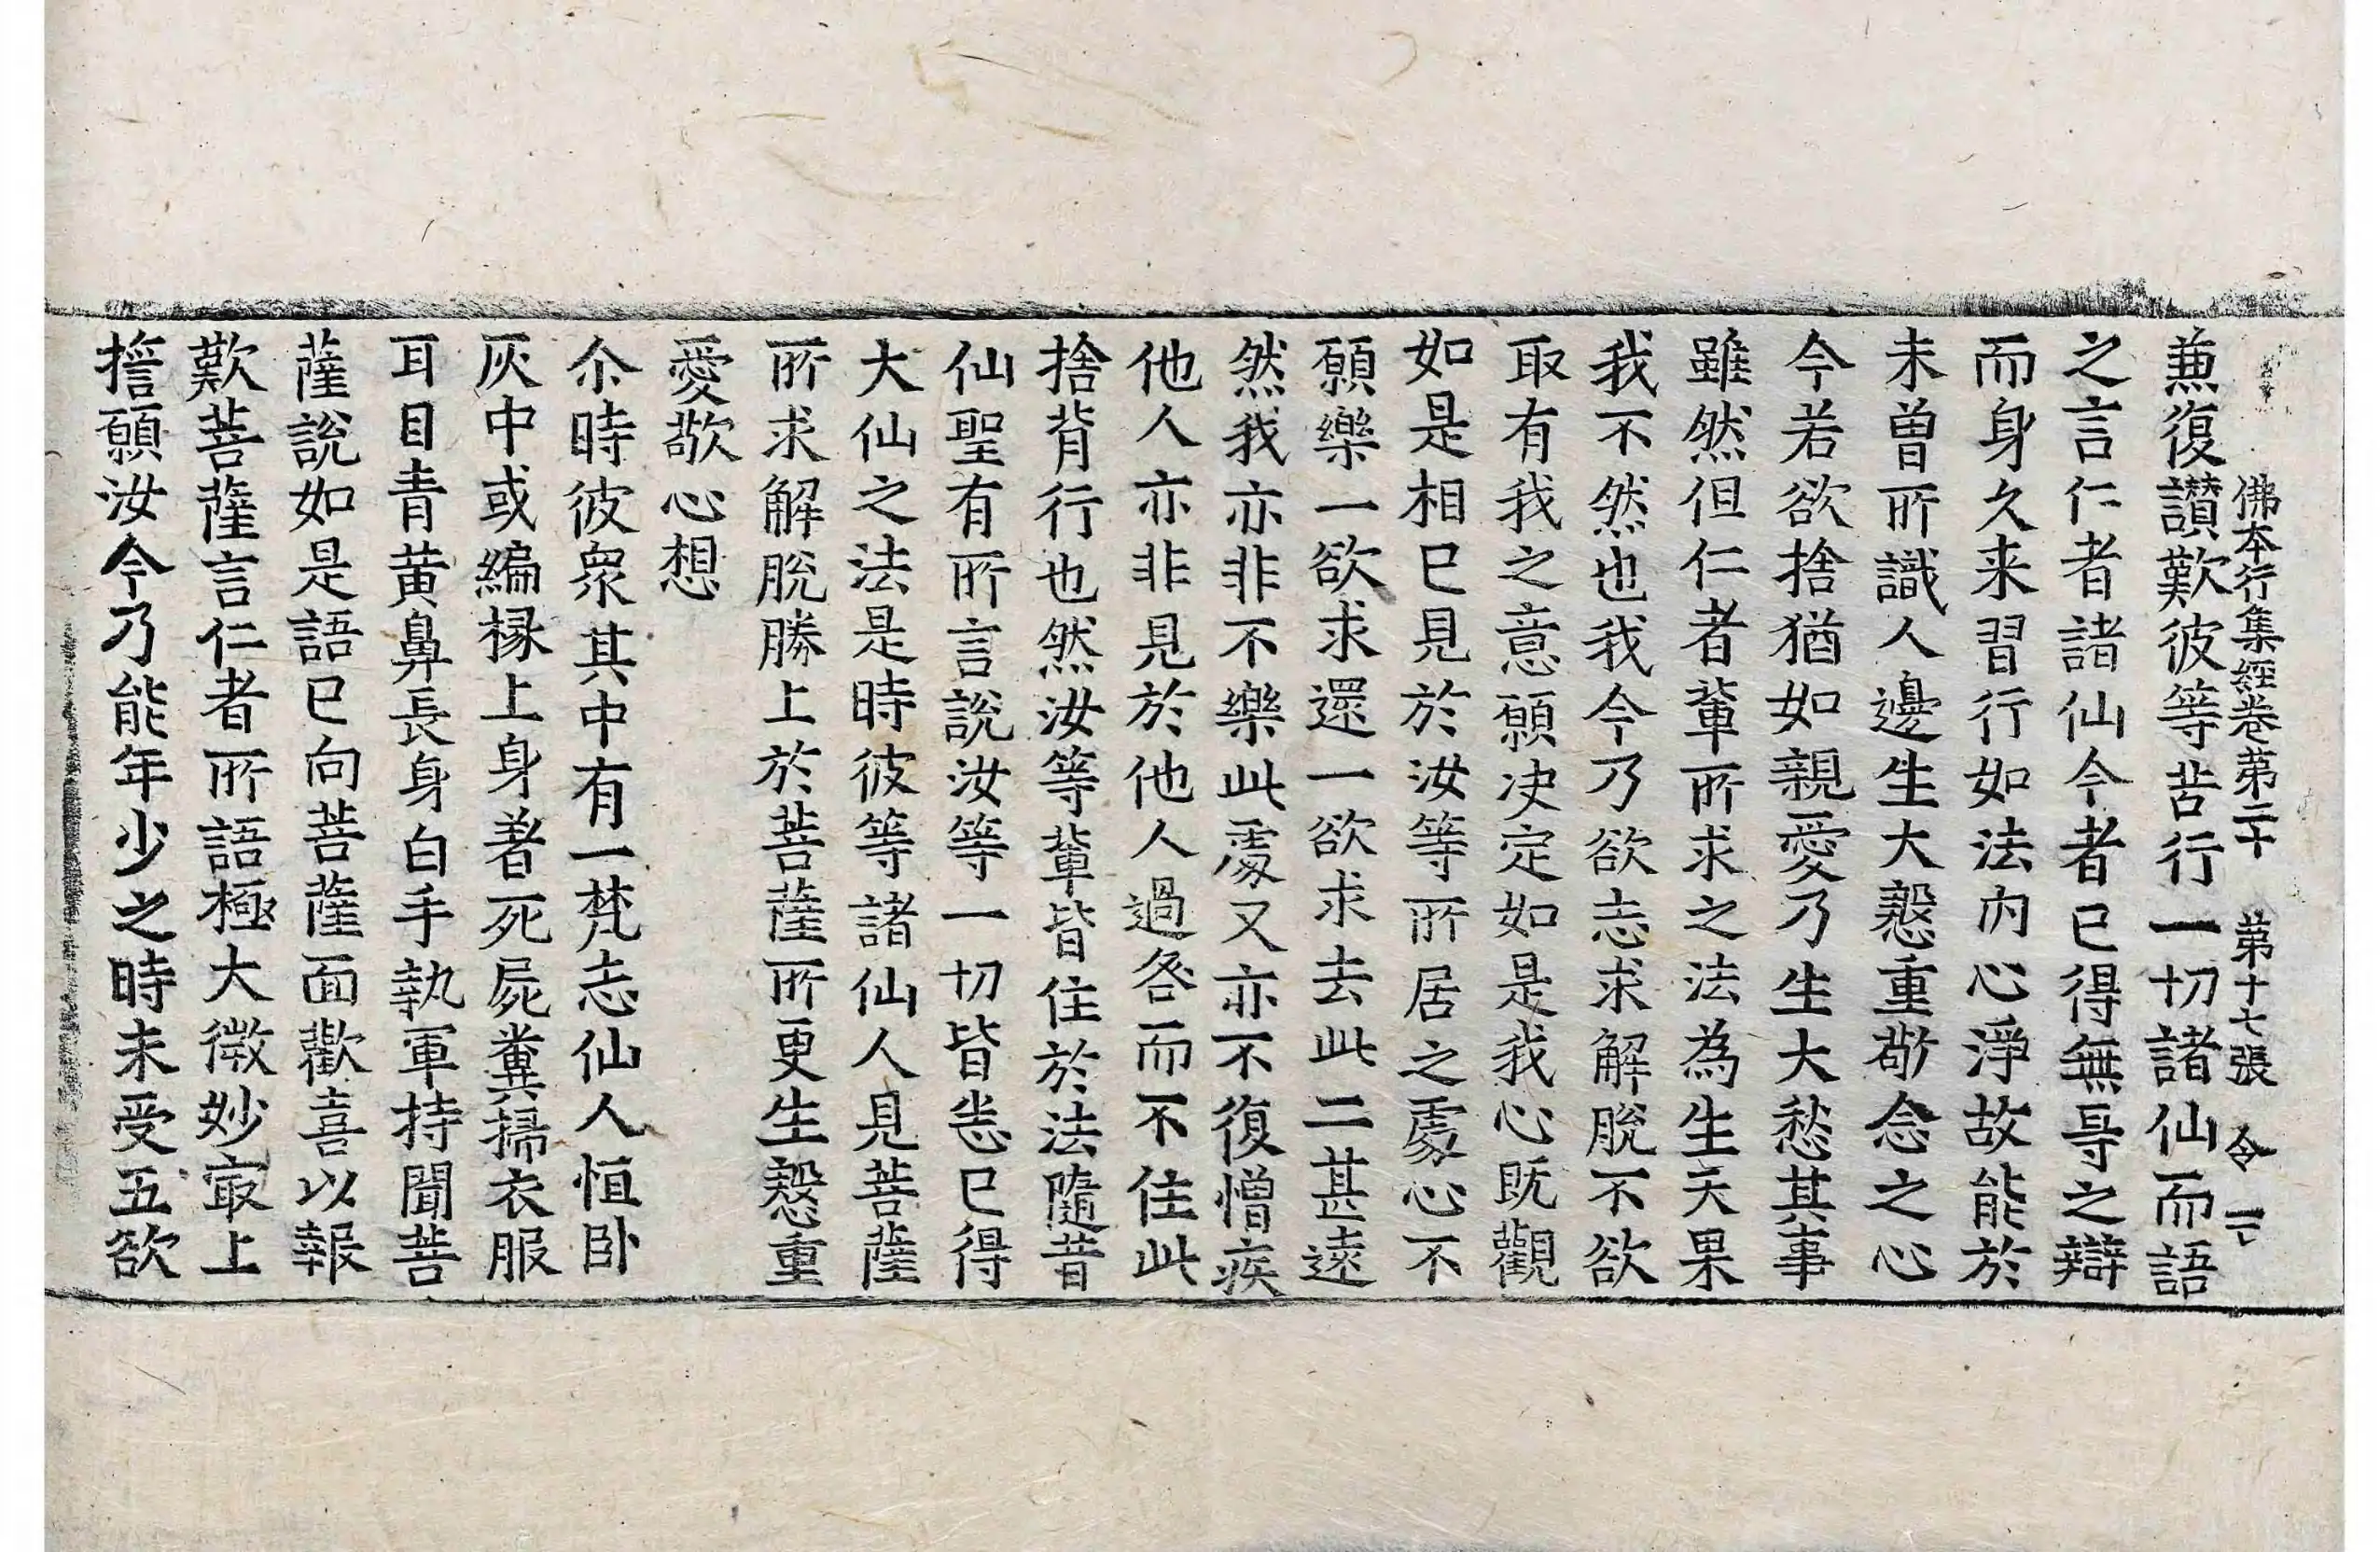 佛本行集經卷第二十 第十七張 令
兼復讃歎彼等苦行一切諸仙而語
之言仁者諸仙今者已得無㝵之辯
而身久来習行如法内心淨故能於
未曽所識人邊生大慇重敬念之心
今若欲捨猶如親愛乃生大愁其事
雖然但仁者軰所求之法為生天果
我不然也我今乃欲志求解脫不欲
取有我之意願决定如是我心既觀
如是相已見於汝等所居之處心不
願樂一欲求還一欲求去此二甚遠
然我亦非不樂此處又亦不復憎疾
他人亦非見於他人過咎而不住此
捨背行也然汝等軰皆住於法隨昔
仙聖有所言說汝等一切皆悉已得
大仙之法是時彼等諸仙人見菩薩
所求解脫勝上於菩薩所更生慇重
愛敬心想
尒時彼衆其中有一梵志仙人恒卧
灰中或編椽上身著死屍糞掃衣服
耳目青黃鼻長身白手執軍持聞菩
薩說如是語已向菩薩面歡喜以報
歎菩薩言仁者所語極大微妙㝡上
擔願汝今乃能年少之時未受五欲